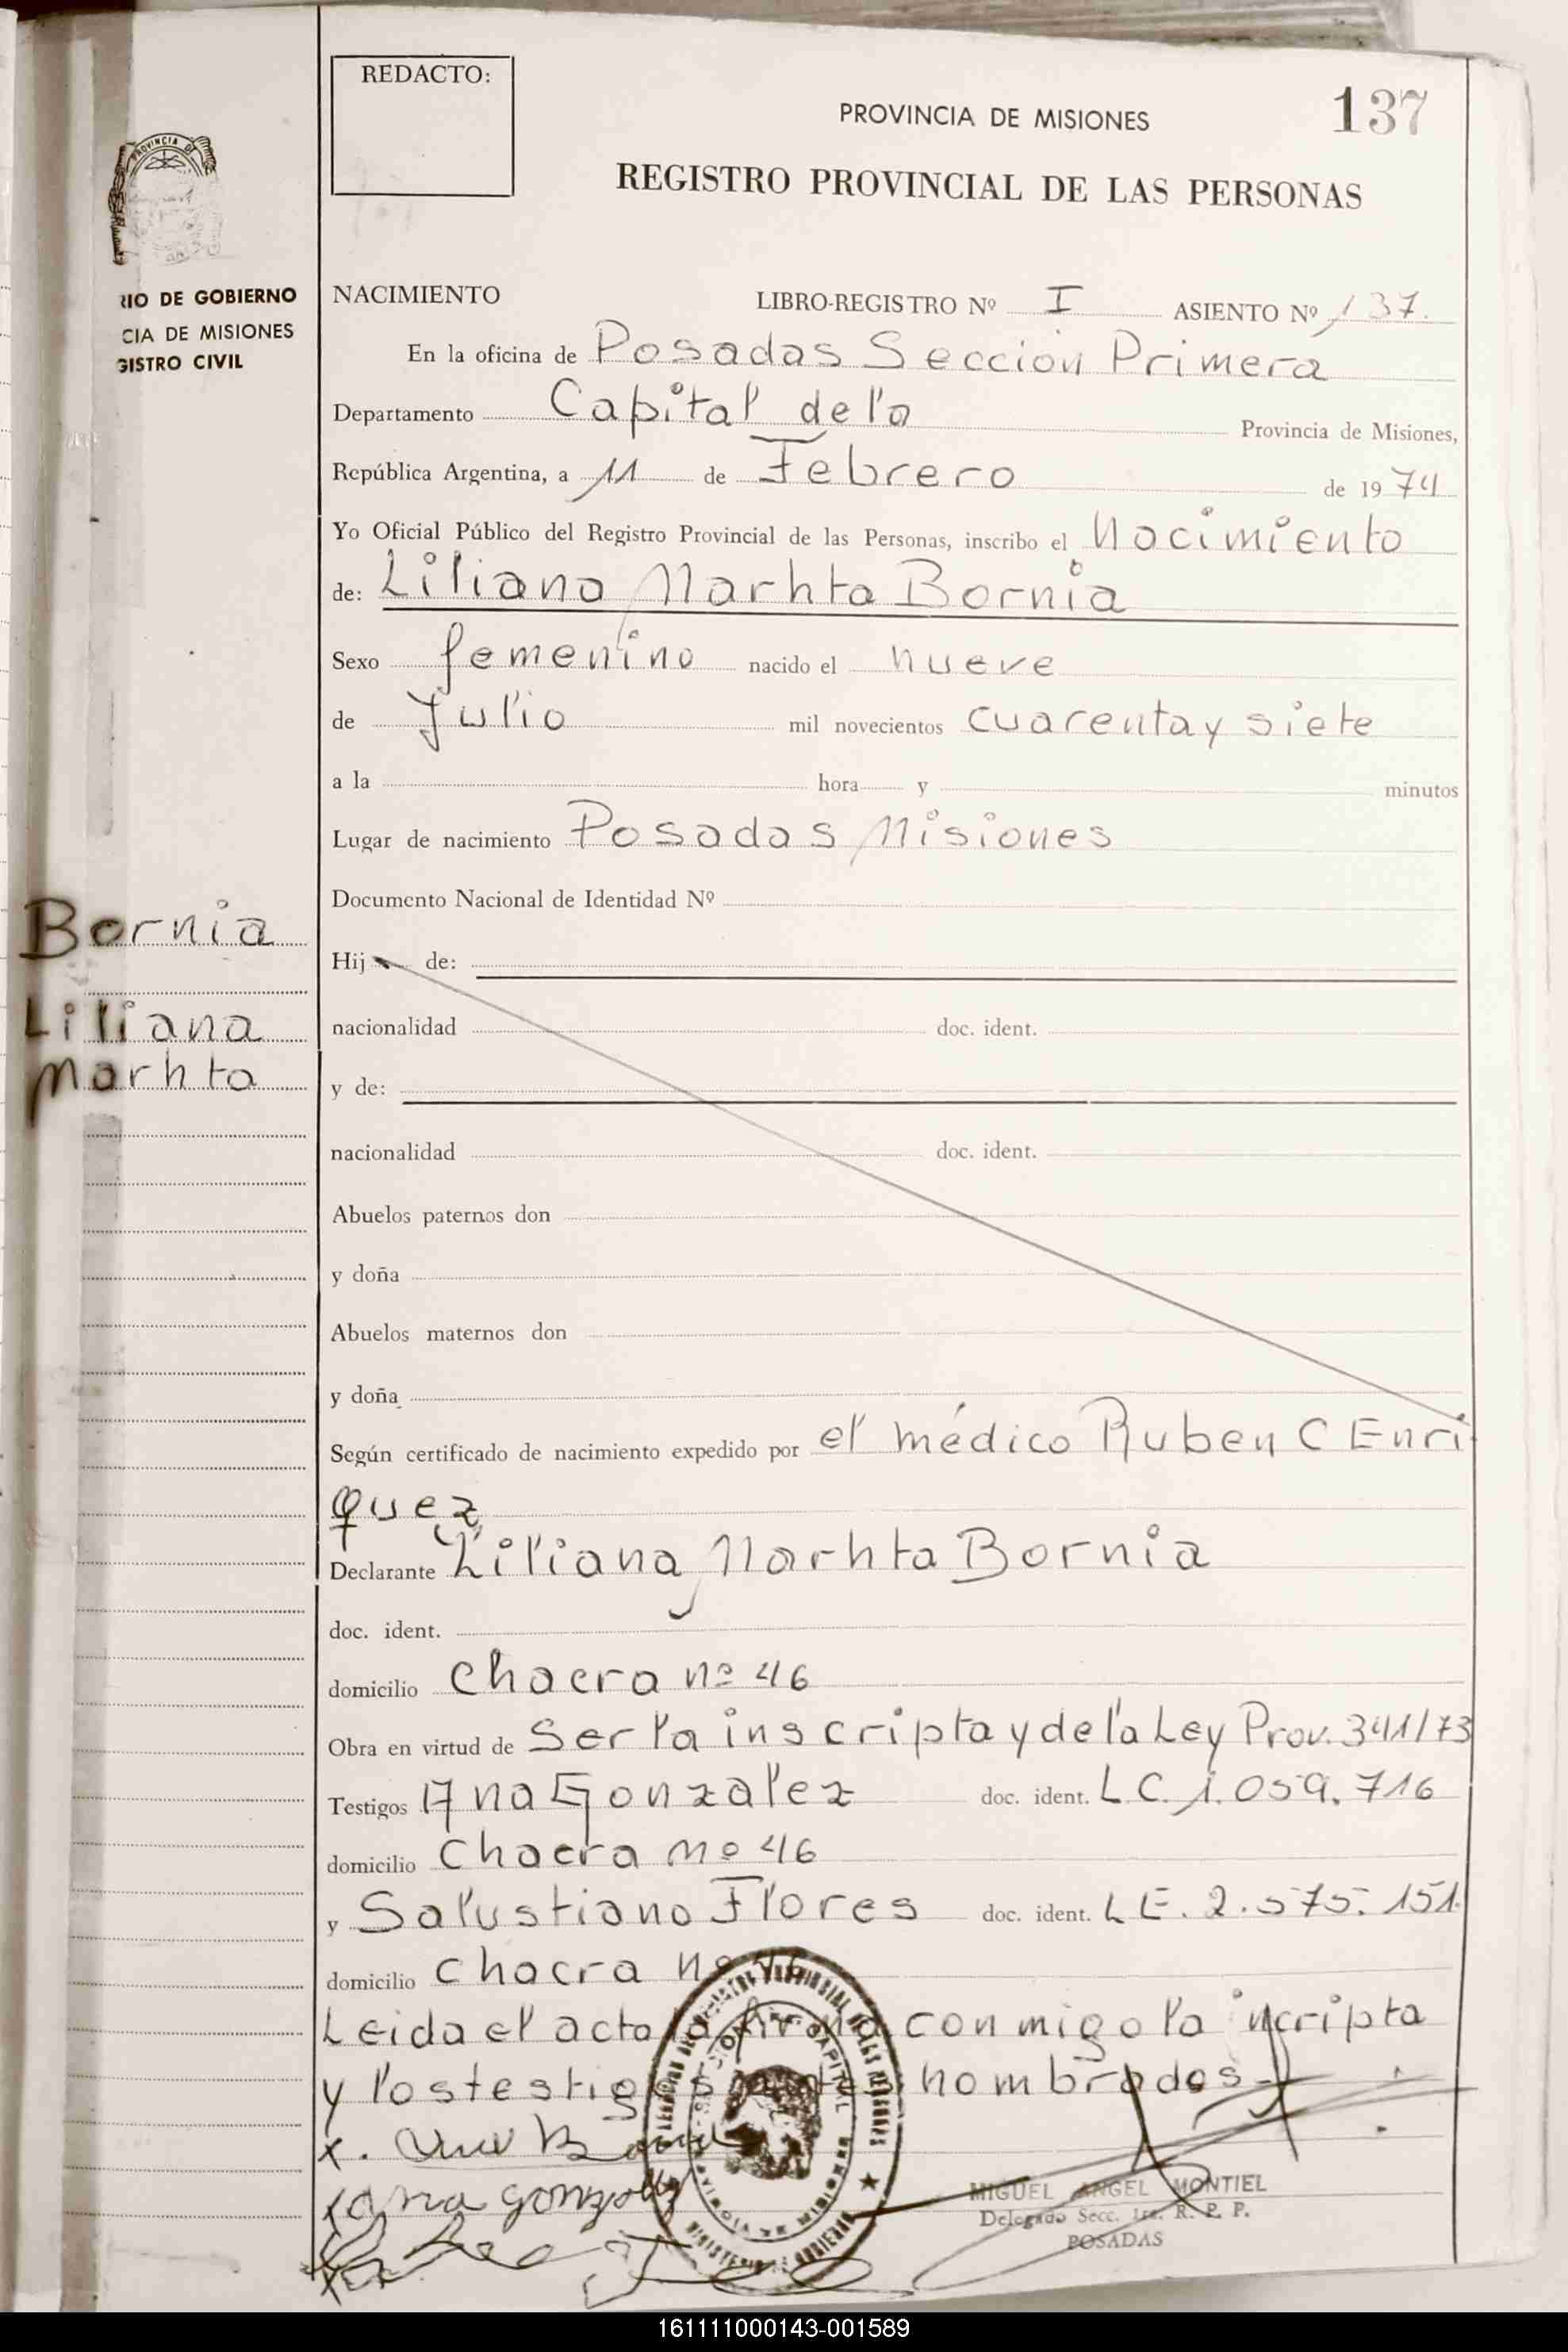 REDACTO:
PROVINCIA DE MISIONES
137
REGISTRO PROVINCIAL DE LAS PERSONAS
PROVINCIA DE
RIO DE GOBIERNO
CIA DE MISIONES
GISTRO CIVIL
NACIMIENTO LIBRO-REGISTRO Nº I ASIENTO Nº 137.
En la oficina de Posadas Sección Primera
Departamento Capital de la Provincia de Misiones,
República Argentina, a 11 de Febrero de 1974
Yo Oficial Público del Registro Provincial de las Personas, inscribo el Nacimiento
de: Liliana Marhta Bornia
Sexo femenino nacido el nueve
de Julio mil novecientos cuarenta y siete
a la hora y minutos
Lugar de nacimiento Posadas Misiones
Documento Nacional de Identidad Nº
Bornia
Liliana
Marhta
Hij de:
nacionalidad doc. ident.
y de:
nacionalidad doc. ident.
Abuelos paternos don
y doña
Abuelos maternos don
y doña
Según certificado de nacimiento expedido por el médico Ruben C Enri
quez
Declarante Liliana Marhta Bornia
doc. ident.
domicilio Chacra nº 46
Obra en virtud de Ser la inscripta y de la Ley Prov. 341/73
Testigos Ana Gonzalez doc. ident. L C. 1.059.716
domicilio Chacra nº 46
y Salustiano Flores doc. ident. L E. 2.575.151.
domicilio chacra nº 46
Leida el acta la firma conmigo la incripta
y los testigos antes nombrados
x.
ana gonzalez
MIGUEL ANGEL MONTIEL
Delegado Secc. 1ra. R. P. P.
POSADAS
161111000143-001589